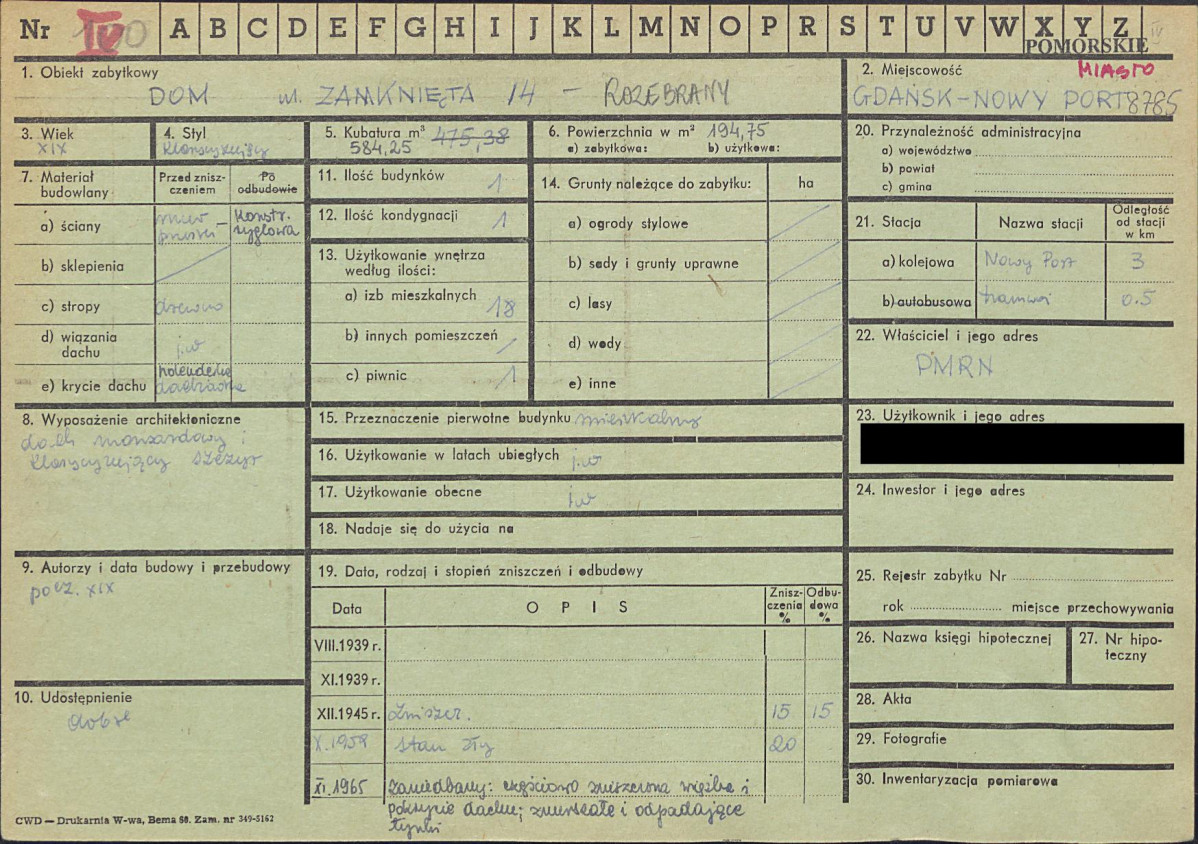 Nr IV 100 A B C D E F G H I J K L M N O P R S T U V W X Y Z IV
POMORSKIE
1. Obiekt zabytkowy
DOM ul. ZAMKNIĘTA 14 – ROZEBRANY
2. Miejscowość MIASTO
GDAŃSK-NOWY PORT 8785
3. Wiek
XIX
4. Styl
Klasycyzujący
5. Kubatura m³ 475,38
584,25
6. Powierzchnia w m² 194,75
a) zabytkowa: b) użytkowa:
7. Materiał budowlany
Przed zniszczeniem
Po odbudowie
a) ściany
Konstr. ryglowa
b) sklepienia
c) stropy drewno
d) wiązania dachu j.w
e) krycie dachu holenderka
8. Wyposażenie architektoniczne
dach mansardowy i
klasycyzujący szczyt
9. Autorzy i data budowy i przebudowy
pocz. XIX
10. Udostępnienie
dobre
11. Ilość budynków 1
12. Ilość kondygnacji 1
13. Użytkowanie wnętrza według ilości:
a) izb mieszkalnych 18
b) innych pomieszczeń
c) piwnic 1
14. Grunty należące do zabytku: ha
a) ogrody stylowe
b) sady i grunty uprawne
c) lasy
d) wody
e) inne
15. Przeznaczenie pierwotne budynku mieszkalny
16. Użytkowanie w latach ubiegłych j.w
17. Użytkowanie obecne j.w
18. Nadaje się do użycia na
19. Data, rodzaj i stopień zniszczeń i odbudowy
Data
OPIS
Zniszczenia %
Odbudowa %
VIII.1939 r.
XI.1939 r.
XII.1945 r. Zniszcz. 15 15
X.1959 stan zły 20
XI.1965 zaniedbany: częściowo zniszczona więźba i
pokrycie dachu; zmurszałe i odpadające
tynki
20. Przynależność administracyjna
a) województwo
b) powiat
c) gmina
21. Stacja
Nazwa stacji
Odległość od stacji w km
a) kolejowa Nowy Port 3
b) autobusowa tramwaj 0.5
22. Właściciel i jego adres
PMRN
23. Użytkownik i jego adres
24. Inwestor i jego adres
25. Rejestr zabytku Nr
rok miejsce przechowywania
26. Nazwa księgi hipotecznej
27. Nr hipoteczny
28. Akta
29. Fotografie
30. Inwentaryzacja pomiarowa
CWD — Drukarnia W-wa, Bema 60. Zam. nr 349-5162